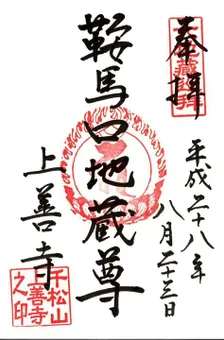 奉拝
平成二十八年
八月二十三日
鞍馬口地蔵尊
上善寺
千松山
上善寺
之印